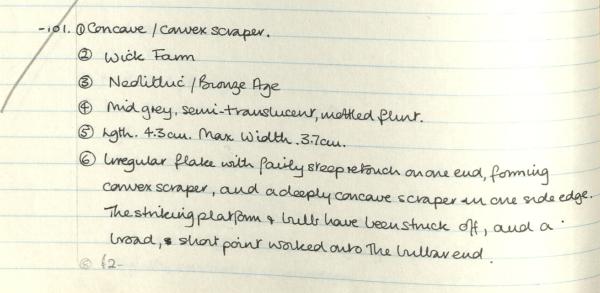 -101. ① Concave / convex scraper.
② Wick Farm
③ Neolithic / Bronze Age
④ Mid grey, semi-translucent, mottled flint.
⑤ Lgth. 4.3cm. Max Width. 3.7cm.
⑥ Irregular flake with fairly steep retouch on one end, forming
convex scraper, and a deeply concave scraper on one side edge.
The striking platform & bulb have been struck off, and a
broad, short point worked onto the bulbar end.